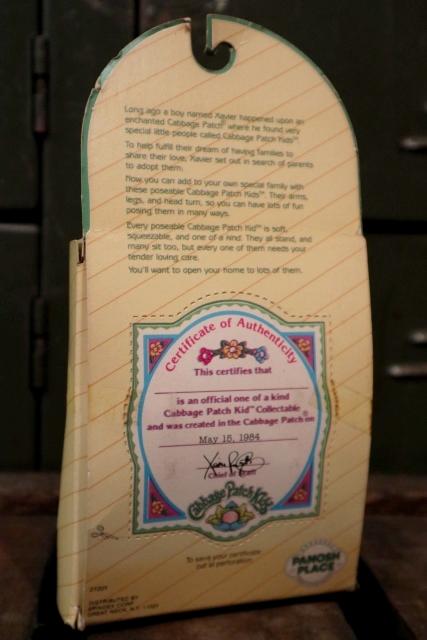 Long ago a boy named Xavier happened upon an
enchanted Cabbage Patch® where he found very
special little people called Cabbage Patch Kids™.
To help fulfill their dream of having families to
share their love, Xavier set out in search of parents
to adopt them.
Now you can add to your own special family with
these poseable Cabbage Patch Kids™. They arms,
legs, and head turn, so you can have lots of fun
posing them in many ways.
Every poseable Cabbage Patch Kid™ is soft,
squeezable, and one of a kind. They all stand, and
many sit too, but every one of them needs your
tender loving care.
You'll want to open your home to lots of them.
Certificate of Authenticity
This certifies that
is an official one of a kind
Cabbage Patch Kid™ Collectable
and was created in the Cabbage Patch® on
May 15, 1984
Chief of Staff
Cabbage Patch Kids
To save your certificate
cut at perforation.
PANOSH
PLACE
DISTRIBUTED BY
GREAT NECK, N.Y. 11021